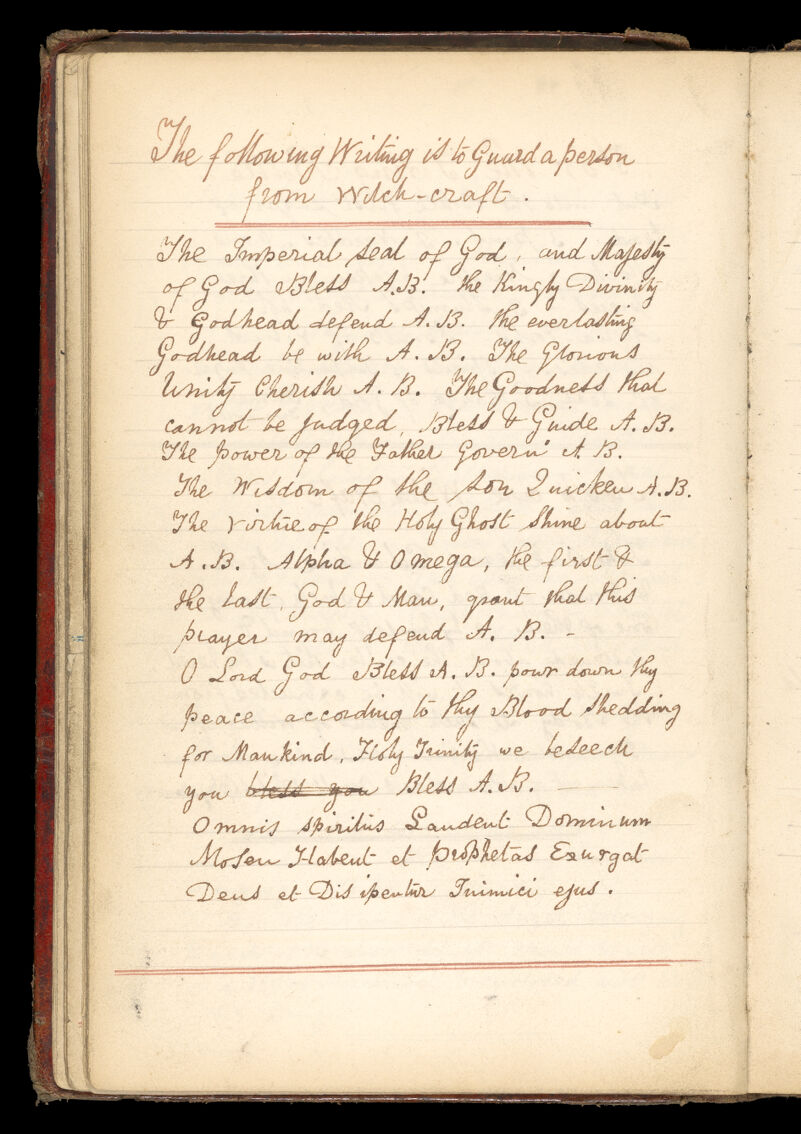 The following Writing is to Guard a person
from Witch-craft.
The Imperial seal of God, and Majesty
of God Bless A.B. the Kingly Divinity
& Godhead defend A.B. the everlasting
Godhead be with A.B. The Glorious
Unity Cherish A.B. The Goodness that
cannot be Judged, Bless & Guide A.B.
The power of the Father Govern A.B.
The Wisdom of the Son Quicken A.B.
The virtue of the Holy Ghost Shine about
A.B. Alpha & Omega, the first &
the last, God & Man, grant that this
prayer may defend A.B. -
O Lord God Bless A.B. pour down thy
peace according to thy Blood shedding
for Mankind, Holy Trinity we beseech
you bless you Bless A.B.
Omnis spiritus Laudent Dominum
Mosen Habent et Prophetas Exurgat
Deus et Disipentur Inimici ejus.